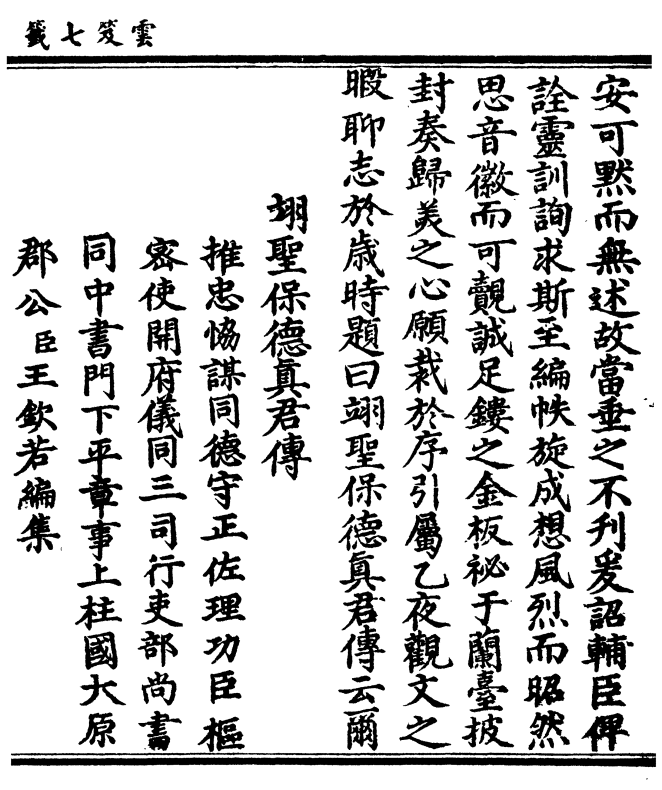 雲笈七籤
安可默而無述故當垂之不刋爰詔輔臣俾
詮靈訓詢求斯至編帙旋成想風烈而昭然
思音徽而可覿誠足鏤之金板祕于蘭臺披
封奏歸美之心願裁於序引屬乙夜觀文之
暇聊志於歲時題曰翊聖保德真君傳云爾
翊聖保德真君傳
推忠恊謀同德守正佐理功臣樞
密使開府儀同三司行吏部尚書
同中書門下平章事上柱國大原
郡公臣王欽若編集